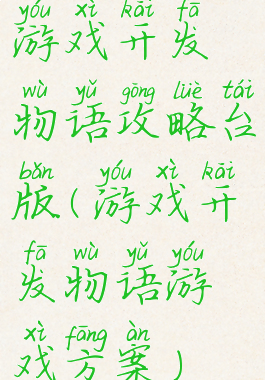 yóu xì kāi fā
游戏开发
wù yǔ gōng lüè tái
物语攻略台
bǎn yóu xì kāi
版(游戏开
fā wù yǔ yóu
发物语游
xì fāng àn
戏方案)